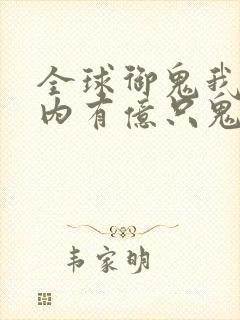 全球御鬼我
内有億只鬼
韦家明